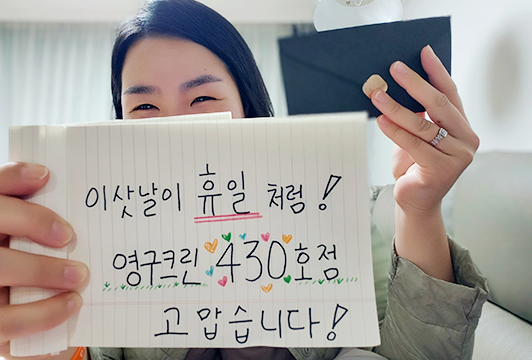 이삿날이 휴일 처럼!
영구크린 430호점
고맙습니다!